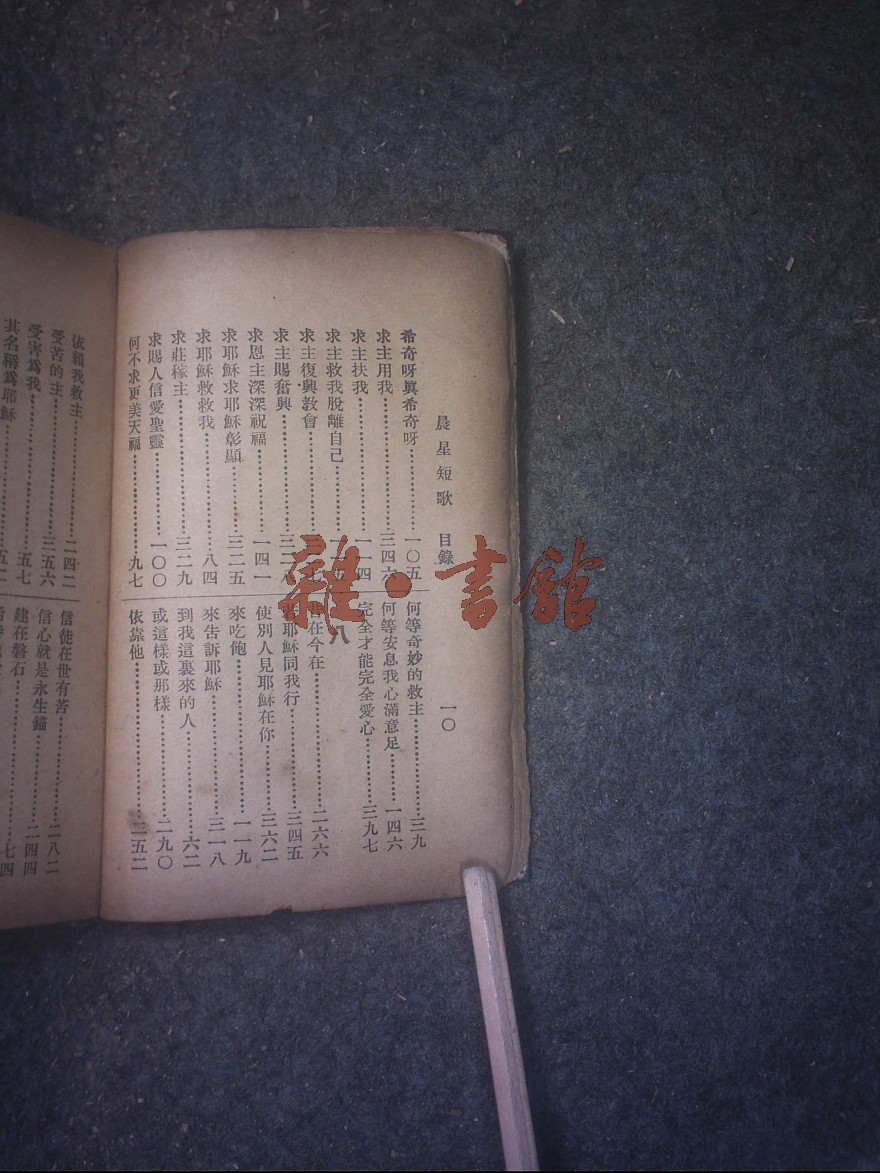 晨星短歌 目錄 一〇
希奇呀眞希奇呀 一〇五
求主用我 三四六
求主扶我 一一四
求主救我脫離自己
求主復興教會
求主賜奮興
求恩主深深祝福 一四一
求耶穌求耶穌彰顯 三二五
求耶穌救救我 八四
求莊稼主 三二九
求賜人信愛聖靈 一〇〇
何不求更美天福 九七
何等奇妙的救主 三九
何等安息我心滿意足 一四六
完全才能完全愛心 三九七
八
昔在今在 二六六
若耶穌同我行 三四五
使別人見耶穌在你 三六二
來吃飽 一一九
來告訴耶穌 三一八
到我這裏來的人 六二
或這樣或那樣 二九〇
依靠他 二五二
依賴我救主 二四二
受苦的主 三五六
受害爲我 五七
其名稱爲耶穌
信徒在世有苦 二八二
信心就是永生錨 二四四
建在磐石 七四
雜·書館